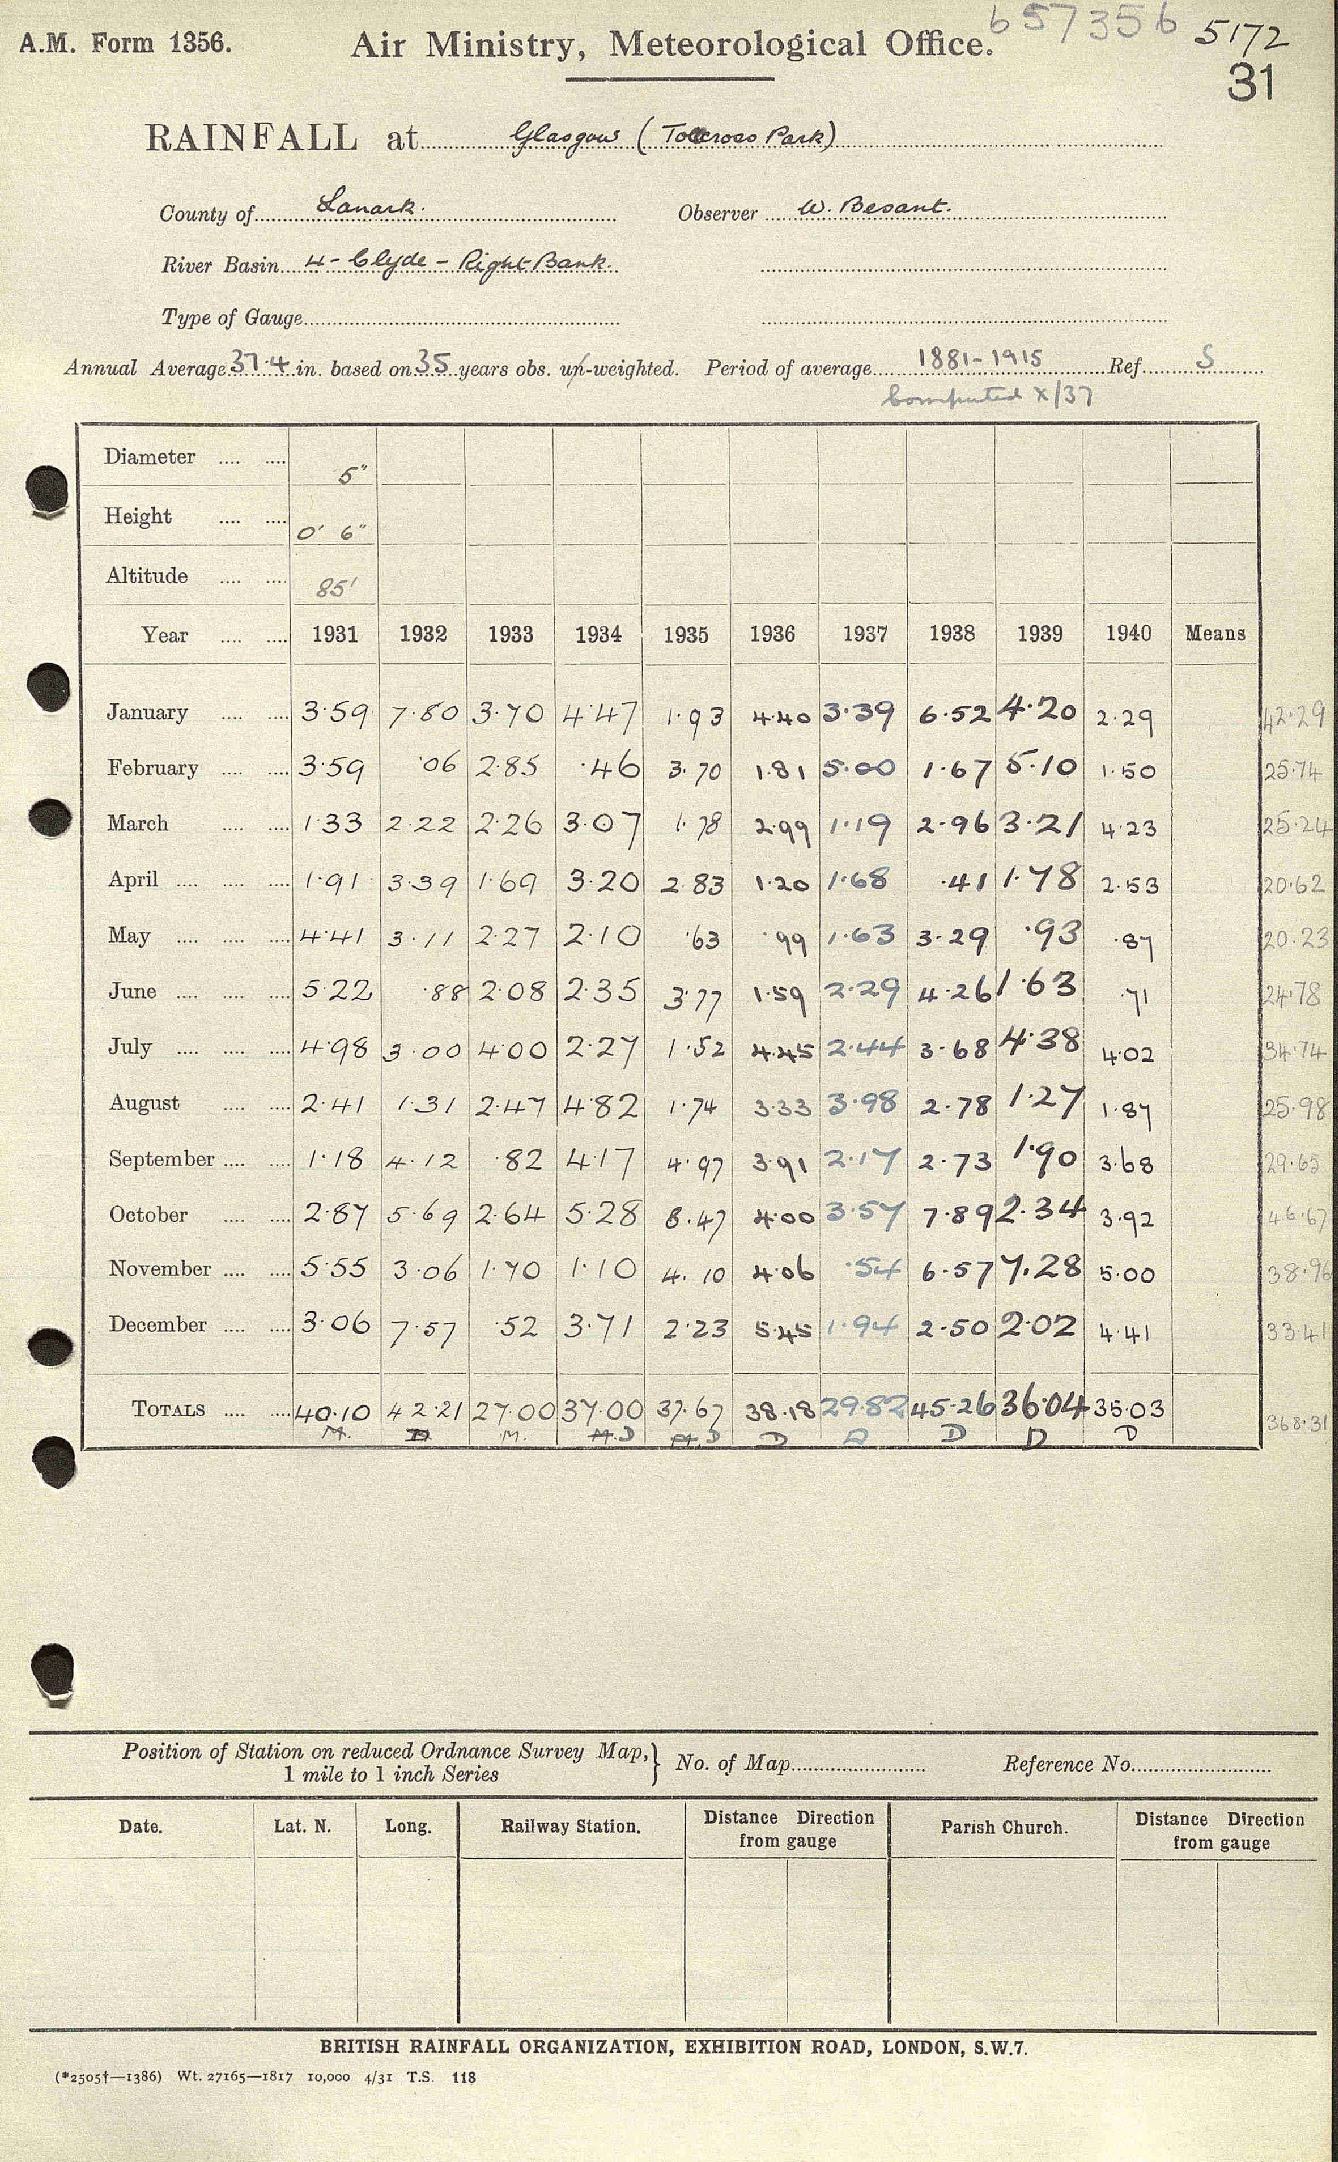 A.M. Form 1356.
Air Ministry, Meteorological Office.
657356
5172
31
RAINFALL at Glasgow (Tollcross Park)
County of Lanark. Observer W. Besant.
River Basin 4 - Clyde - Right Bank.
Type of Gauge
Annual Average 37.4 in. based on 35 years obs. un-weighted. Period of average 1881-1915 Ref. S
Computed X/37
Diameter .... .... 5"
Height .... .... 0' 6"
Altitude .... .... 85'
Year .... .... 1931 1932 1933 1934 1935 1936 1937 1938 1939 1940 Means
January .... .... 3.59 7.80 3.70 4.47 1.93 4.40 3.39 6.52 4.20 2.29 42.29
February .... .... 3.59 .06 2.85 .46 3.70 1.81 5.00 1.67 5.10 1.50 25.74
March .... .... 1.33 2.22 2.26 3.07 1.78 2.99 1.19 2.96 3.21 4.23 25.24
April .... .... .... 1.91 3.39 1.69 3.20 2.83 1.20 1.68 .41 1.78 2.53 20.62
May .... .... .... 4.41 3.11 2.27 2.10 .63 .99 1.63 3.29 .93 .87 20.23
June .... .... .... 5.22 .88 2.08 2.35 3.77 1.59 2.29 4.26 1.63 .71 24.78
July .... .... .... 4.98 3.00 4.00 2.27 1.52 4.45 2.44 3.68 4.38 4.02 34.74
August .... .... 2.41 1.31 2.47 4.82 1.74 3.33 3.98 2.78 1.27 1.87 25.98
September .... .... 1.18 4.12 .82 4.17 4.97 3.91 2.17 2.73 1.90 3.68 29.65
October .... .... 2.87 5.69 2.64 5.28 8.47 4.00 3.57 7.89 2.34 3.92 46.67
November .... .... 5.55 3.06 1.70 1.10 4.10 4.06 .54 6.57 7.28 5.00 38.96
December .... .... 3.06 7.57 .52 3.71 2.23 5.45 1.94 2.50 2.02 4.41 33.41
TOTALS .... .... 40.10 42.21 27.00 37.00 37.67 38.18 29.82 45.26 36.04 35.03 368.31
M. D M. M. D M. D D D D D D
Position of Station on reduced Ordnance Survey Map, } No. of Map Reference No.
1 mile to 1 inch Series
Date. Lat. N. Long. Railway Station. Distance Direction from gauge Parish Church. Distance Direction from gauge
BRITISH RAINFALL ORGANIZATION, EXHIBITION ROAD, LONDON, S.W.7.
(*2505†—1386) Wt. 27165—1817 10,000 4/31 T.S. 118